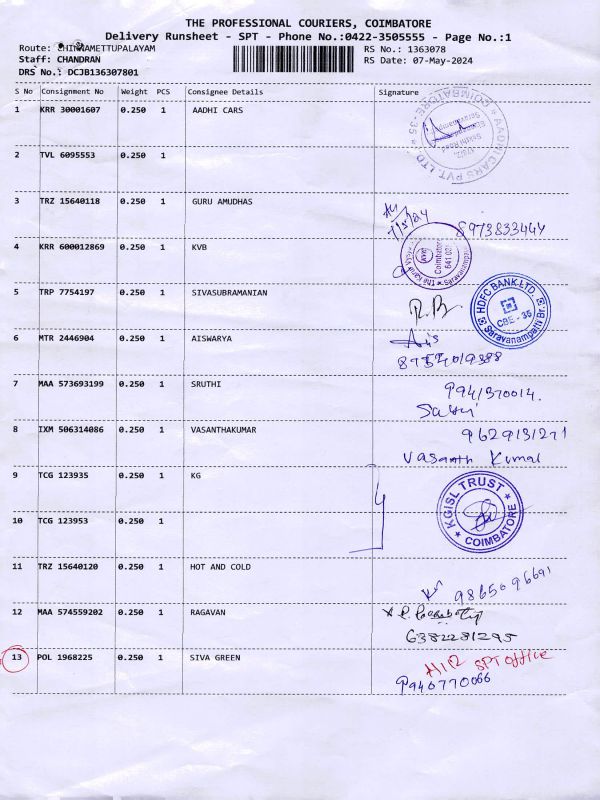 THE PROFESSIONAL COURIERS, COIMBATORE
Delivery Runsheet - SPT - Phone No.:0422-3505555 - Page No.:1
Route: CHINNAMETTUPALAYAM RS No.: 1363078
Staff: CHANDRAN RS Date: 07-May-2024
DRS No.: DCJB136307801
S No Consignment No Weight PCS Consignee Details Signature
1 KRR 30001607 0.250 1 AADHI CARS
AADHI CARS PVT. LTD. COIMBATORE - 35
2 TVL 6095553 0.250 1
3 TRZ 15640118 0.250 1 GURU AMUDHAS
7/5/24 8973833444
4 KRR 600012869 0.250 1 KVB
Coimbatore
5 TRP 7754197 0.250 1 SIVASUBRAMANIAN
HDFC BANK LTD.
CBE - 35
Saravanampatti Br.
6 MTR 2446904 0.250 1 AISWARYA
7 MAA 573693199 0.250 1 SRUTHI
8 IXM 506314086 0.250 1 VASANTHAKUMAR
9629131271
Vasanth Kumar
9 TCG 123935 0.250 1 KG
KGISL TRUST
COIMBATORE
10 TCG 123953 0.250 1
11 TRZ 15640120 0.250 1 HOT AND COLD
9865096691
12 MAA 574559202 0.250 1 RAGAVAN
6382281295
13 POL 1968225 0.250 1 SIVA GREEN
SPT OFFICE